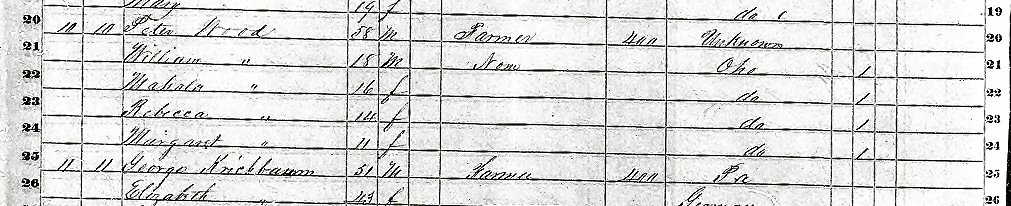 Mary 19 f do 19
20 10 10 Peter Wood 58 M Farmer 400 Unknown 20
21 William " 18 M None Oho 1 21
22 Mahala " 16 f do 1 22
23 Rebecca " 14 f do 1 23
24 Margaret " 11 f do 1 24
25 11 11 George Krichbaum 51 M Farmer 400 Pa 25
26 Elizabeth " 43 f 26